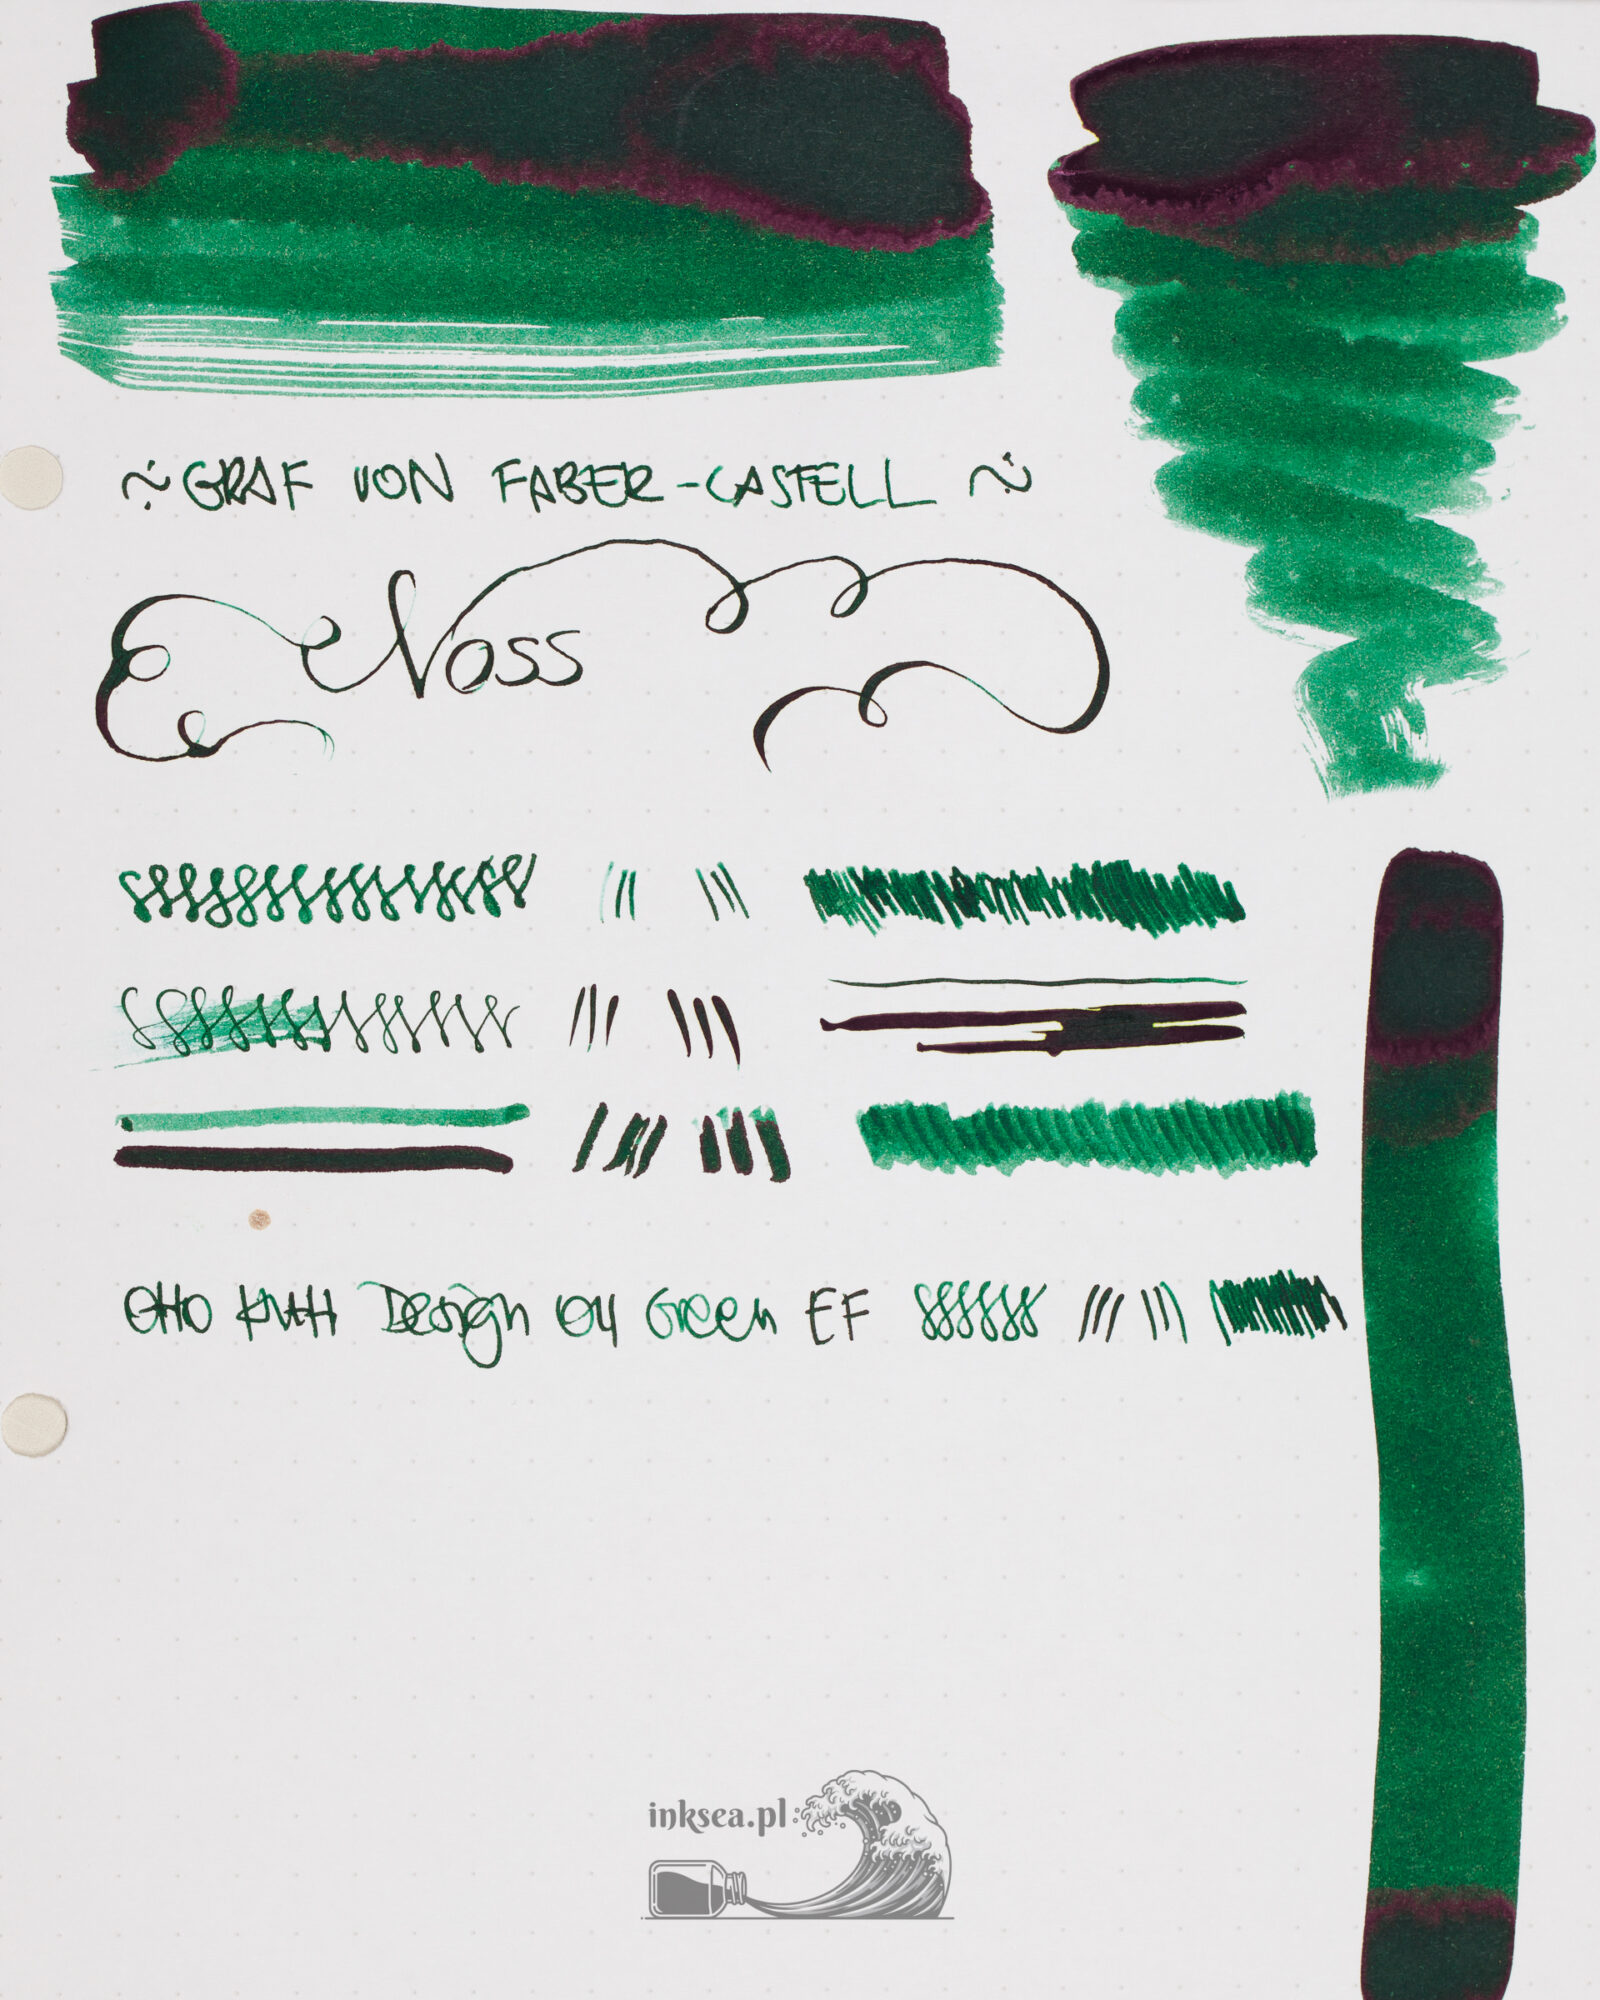 ~ GRAF VON FABER-CASTELL ~
Moss
Otto Hutt Design 04 Green EF
inksea.pl